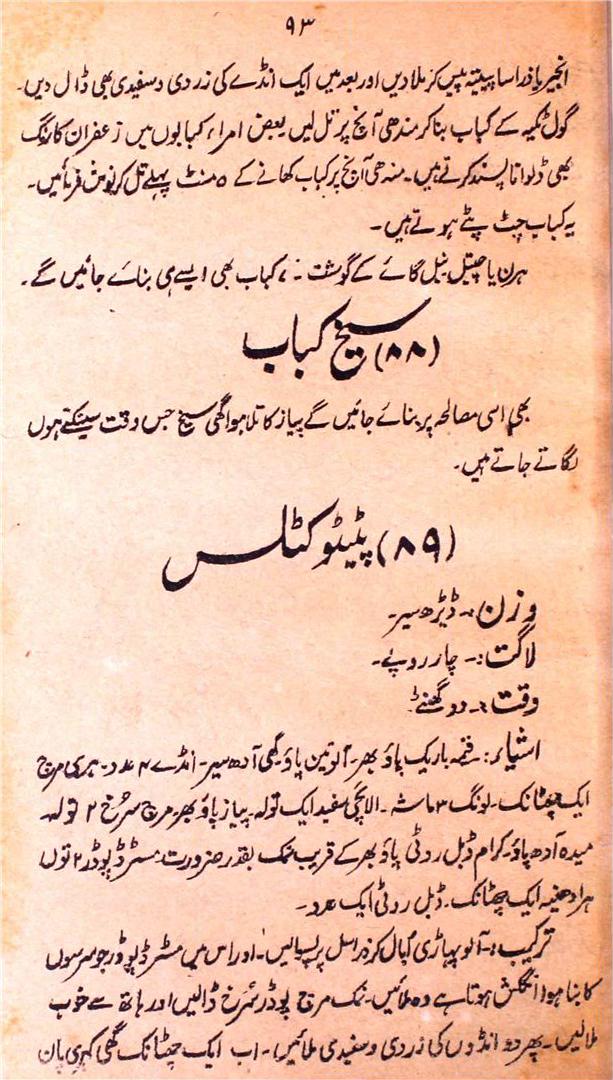 ۹۳
انجیر یا ذرا سا پپیتہ پیس کر ملا دیں اور بعد میں ایک انڈے کی زردی و سفیدی بھی ڈال دیں۔
گول ٹکیہ کے کباب بنا کر مندھی آنچ پر تل لیں بعض امراء کبابوں میں زعفران کا رنگ
بھی ڈلوانا پسند کرتے ہیں۔ مندھی آنچ پر کباب کھانے کے ۵ منٹ پہلے تل کر نوش فرمائیں۔
یہ کباب چٹ پٹے ہوتے ہیں۔
ہرن یا چیتل نیل گائے کے گوشت کے کباب بھی ایسے ہی بنائے جائیں گے۔
(۸۸) سیخ کباب
بھی اسی مصالحہ پر بنائے جائیں گے پیاز کا تلا ہوا گھی سیخ جس وقت سینکتے ہوں
لگاتے جاتے ہیں۔
(۸۹) پٹیٹو کٹلس
وزن :۔ ڈیڑھ سیر۔
لاگت :۔ چار روپے۔
وقت :۔ دو گھنٹے۔
اشیاء :۔ قیمہ باریک پاؤ بھر۔ آلو تین پاؤ۔ گھی آدھ سیر۔ انڈے ۴ عدد۔ ہری مرچ
ایک چھٹانک۔ لونگ ۳ ماشہ۔ الائچی سفید ایک تولہ۔ پیاز پاؤ بھر۔ مرچ سرخ ۲ تولہ۔
میدہ آدھ پاؤ۔ کرام ڈبل روٹی پاؤ بھر کے قریب نمک بقدر ضرورت۔ مسٹرڈ پوڈر ۲ تولہ
ہرا دھنیہ ایک چھٹانک۔ ڈبل روٹی ایک عدد۔
ترکیب :۔ آلو پہاڑی اُبال کر ذرا سل پر پسیالیں۔ اور اس میں مسٹرڈ پوڈر جو سرسوں
کا بنا ہوا انگلش ہوتا ہے وہ ملائیں۔ نمک مرچ پوڈر سُرخ ڈالیں اور ہاتھ سے خوب
ملالیں۔ پھر دو انڈوں کی زردی و سفیدی ملائیں۔ اب ایک چھٹانک گھی کہری پان